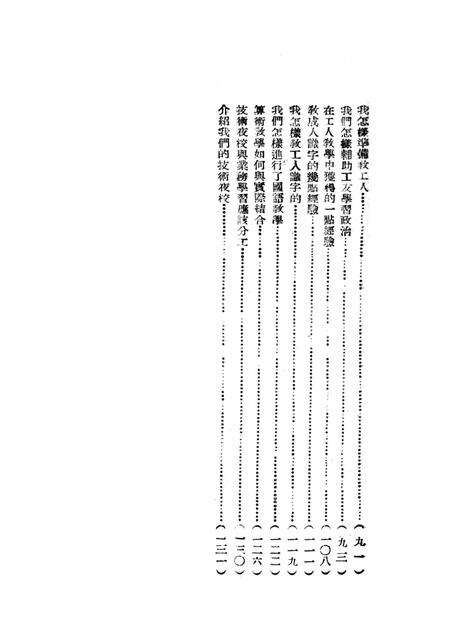 我怎樣準備敎工人……(九一)
我們怎樣輔助工友學習政治……(九三)
在工人敎學中獲得的一點經驗……(一〇八)
敎成人識字的幾點經驗……(一一一)
我怎樣敎工人識字的……(一一九)
我們怎樣進行了國語敎學……(一二二)
算術敎學如何與實際結合……(一二六)
技術夜校與業務學習應該分工……(一三〇)
介紹我們的技術夜校……(一三一)